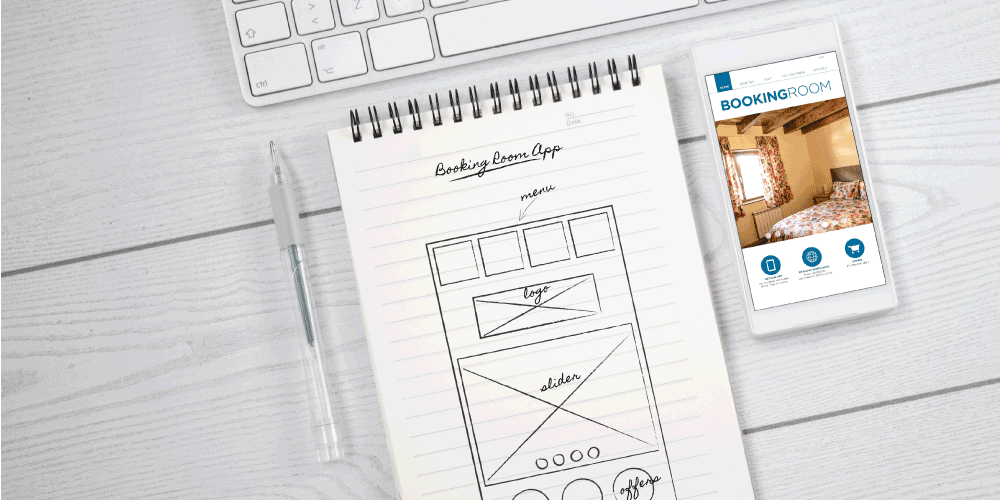 ctrl
alt
Z
NO.
Date
Booking Room App
menu
logo
slider
offers
HOME
BOOKINGROOM